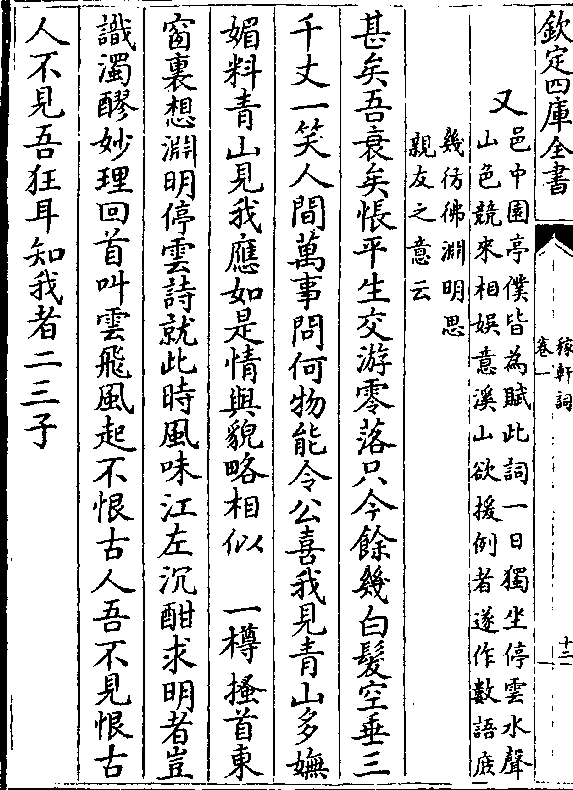 欽定四庫全書
稼軒詞
卷一
十三
又
邑中園亭僕皆為賦此詞一日獨坐停雲水聲
山色競來相娯意溪山欲援例者遂作數語庶
幾彷彿淵明思
親友之意云
甚矣吾衰矣悵平生交游零落只今餘幾白髮空垂三
千丈一笑人間萬事問何物能令公喜我見青山多嫵
媚料青山見我應如是情與貌略相似 一樽搔首東
窗裏想淵明停雲詩就此時風味江左沉酣求明者豈
識濁醪妙理回首叫雲飛風起不恨古人吾不見恨古
人不見吾狂耳知我者二三子